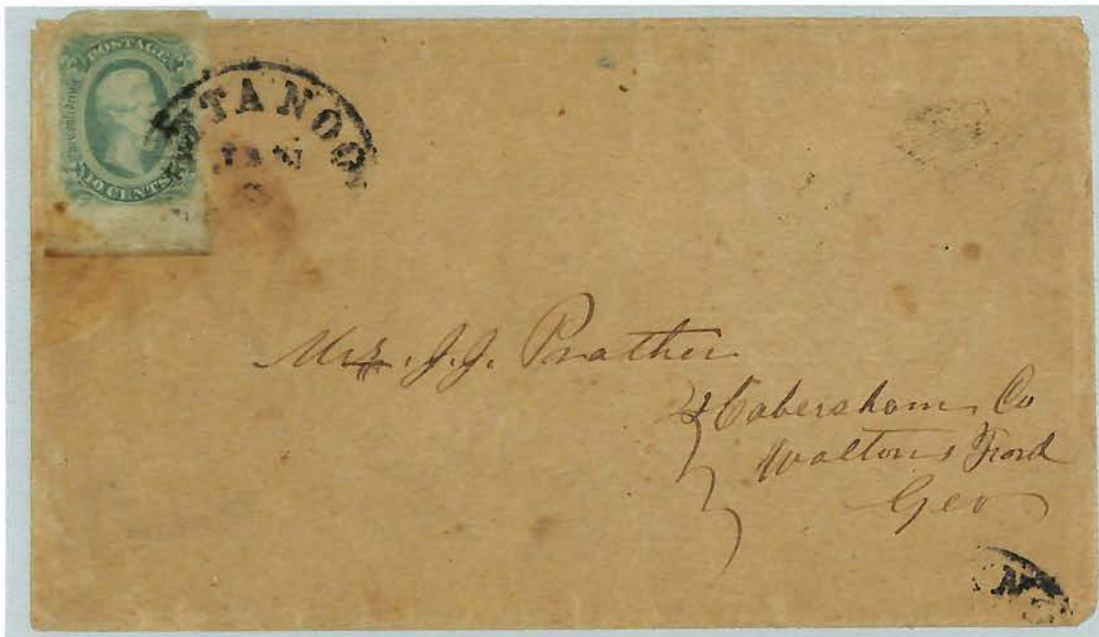 POSTAGE
10 CENTS
TTANOOG
Mrs. J. J. Prather
Habersham Co
Waltons Ford
Geo